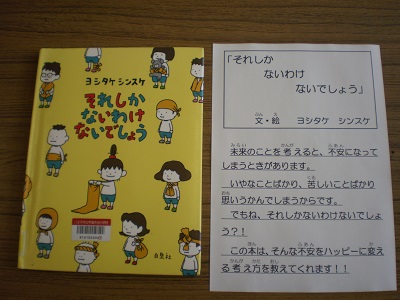 ヨシタケ シンスケ
それしか
ないわけ
ないでしょう
白泉社
「それしか
ないわけ
ないでしょう」
文・絵　ヨシタケ　シンスケ
未来のことを考えると、不安になって
しまうときがあります。
いやなことばかり、苦しいことばかり
思いうかんでしまうからです。
でもね、それしかないわけないでしょ
う？！
この本は、そんな不安をハッピーに変え
る考え方を教えてくれます！！